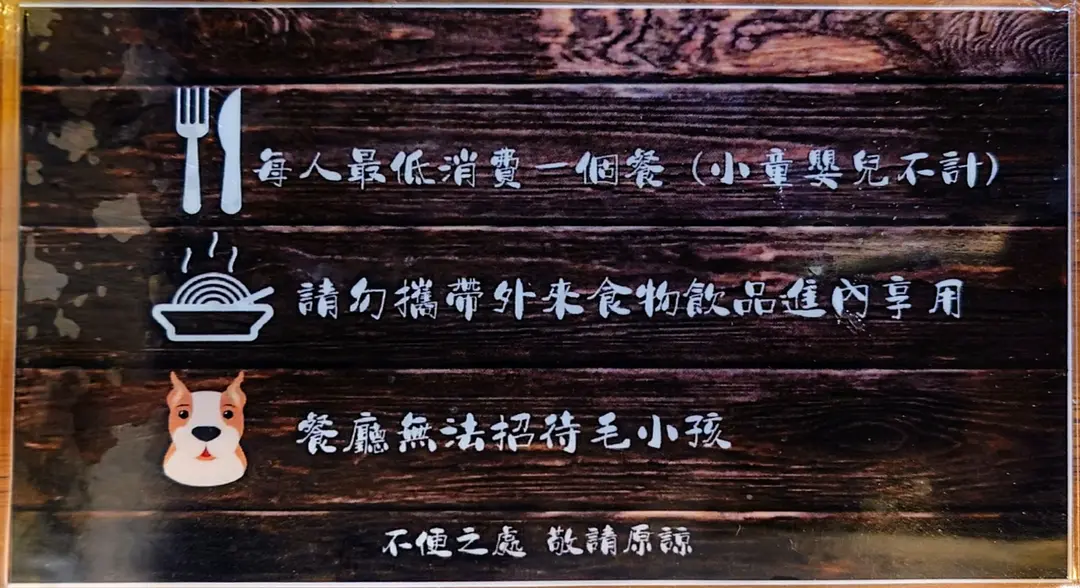 每人最低消費一個餐(小童嬰兒不計)
請勿攜帶外來食物飲品進內享用
餐廳無法招待毛小孩
不便之處 敬請原諒